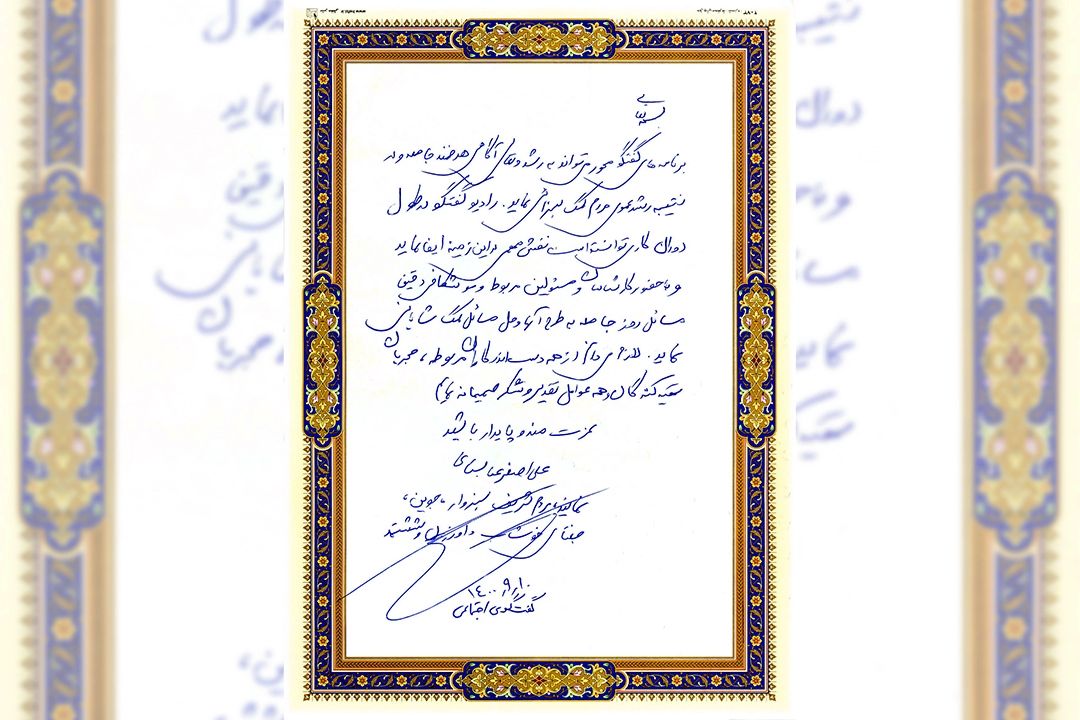 بسمه تعالی
برنامه های گفتگو محور می تواند به رشد و تعالی آگاهی هدفمند جامعه و در
نتیجه رشد عمومی مردم کمک بسزائی نماید. رادیو گفتگو در طول
دوران کاری توانسته است نقش مهمی در این زمینه ایفا نماید
و با حضور کارشناسان و مسئولین مربوط و موشکافی دقیق
مسائل روز جامعه به طرح آنها و حل مسائل کمک شایانی
نماید. لازم می دانم از همه دست اندرکاران مربوطه، مجریان
تهیه کنندگان و همه عوامل تقدیر و تشکر صمیمانه نمایم
عزت مند و پایدار باشید
علی اصغر عنابستانی
نماینده مردم شریف سبزوار، جوین،
جغتای خوشاب داورزن و ششتمد
۱۴۰۰/۹/۱۰
گفتگوی اجتماعی